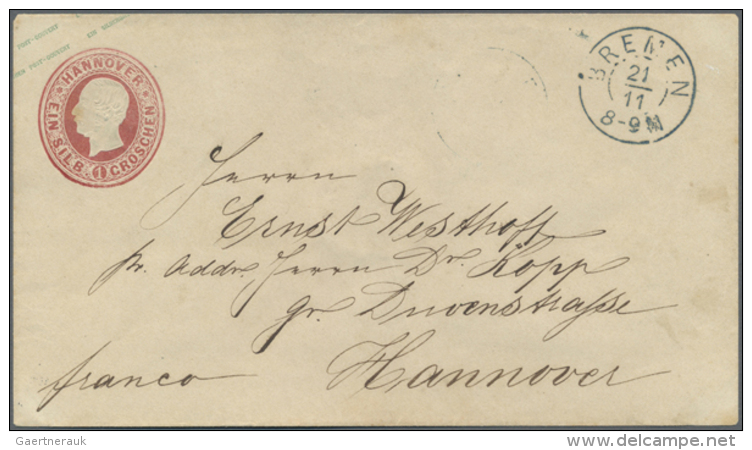 POST-COUVERT EIN
POST-COUVERT
HANNOVER
EIN SILB. 1 GROSCHEN
BREMEN
21
11
8-9 N
Herrn
Ernst Westhoff
pr. Addr. Herrn Dr. Kopp
gr. Duvenstraße
franco Hannover
Gaertnerauk
delcampe.net